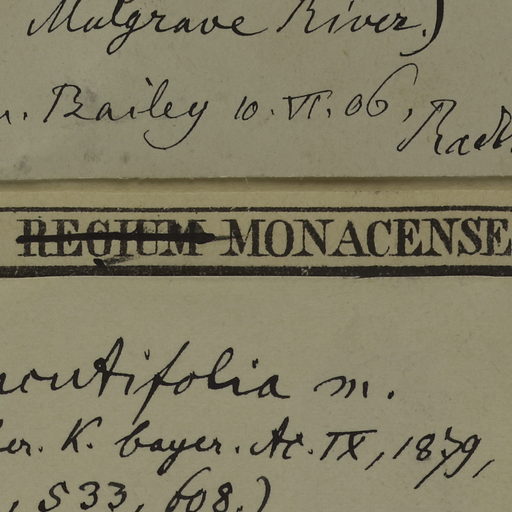 Mulgrave River.)
Bailey 10. VI. 06,
REGIUM MONACENSE
acutifolia m.
er. K. bayer. Ac. IX, 1879,
, 533, 608.)